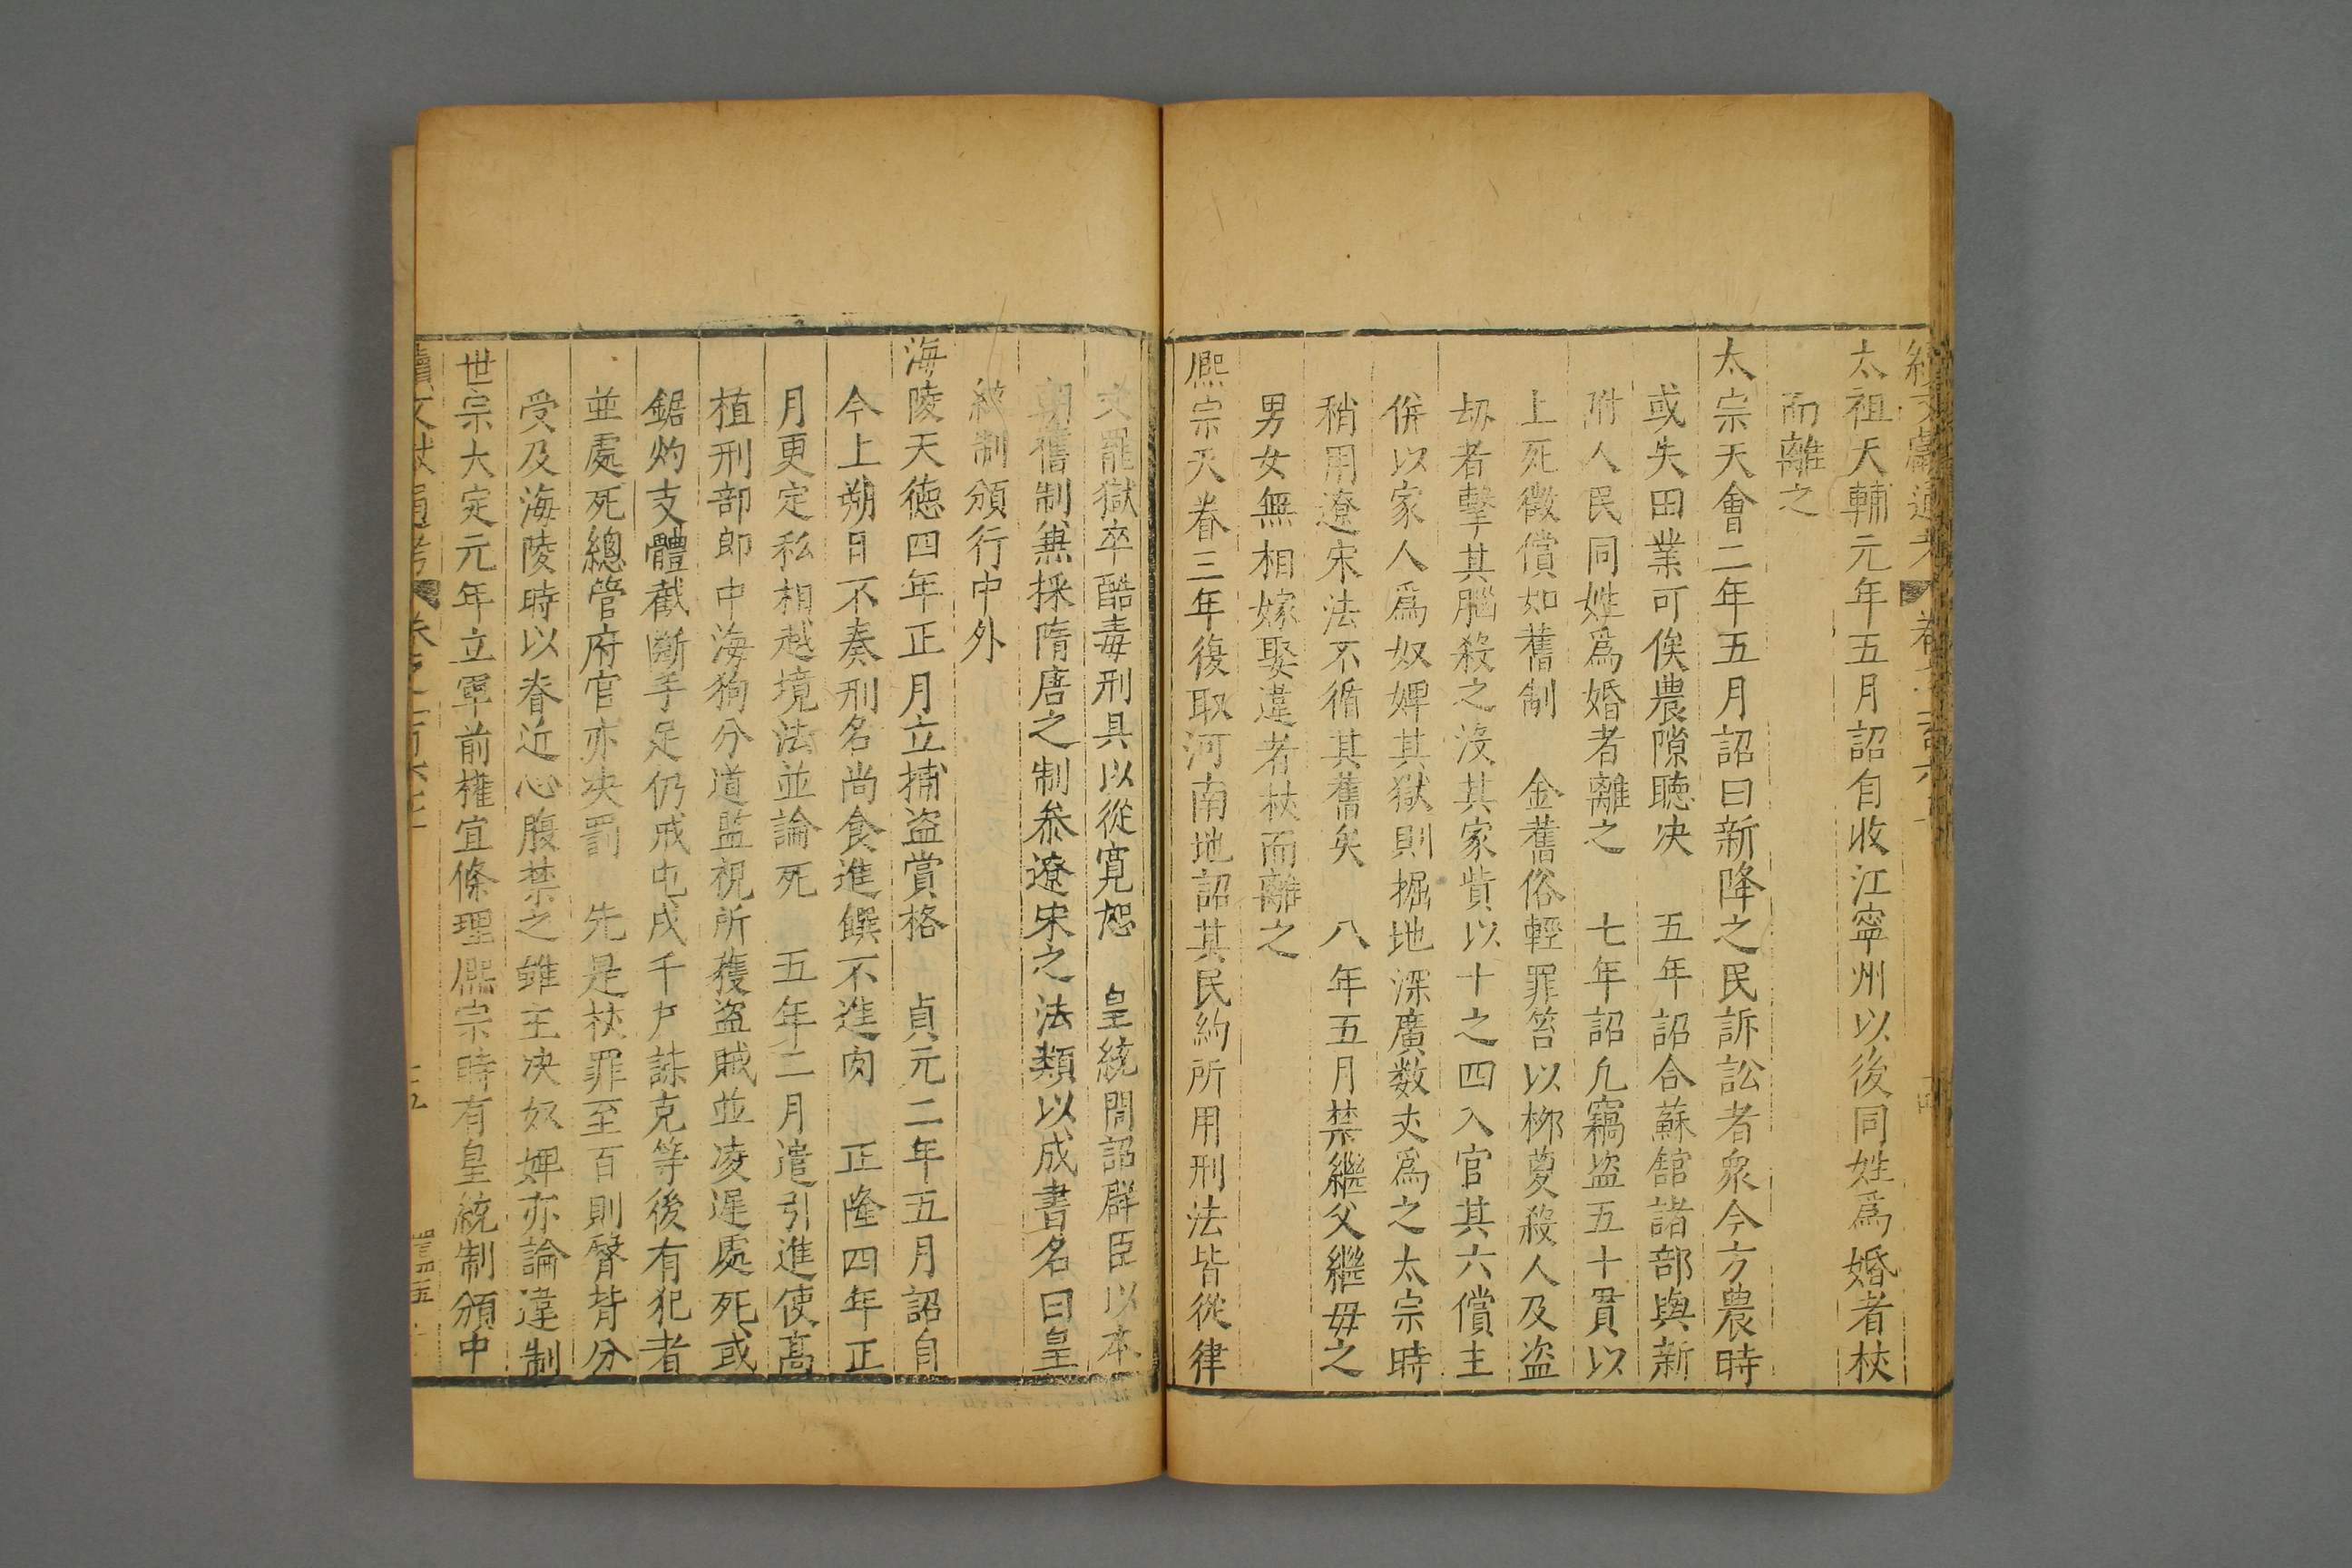 太祖天輔元年五月詔自收江寧州以後同姓爲婚者杖
而離之
太宗天會二年五月詔曰新降之民訴訟者衆今方農時
或失田業可俟農隙聴决　五年詔合蘇舘諸部與新
附人民同姓爲婚者離之　七年詔凢竊盗五十貫以
上死徵償如舊制　金舊俗輕罪笞以柳葼殺人及盗
刼者擊其腦殺之沒其家貲以十之四入官其六償主
併以家人爲奴婢其獄則掘地深廣数丈爲之太宗時
稍用遼宋法不循其舊矣　八年五月禁繼父繼毋之
男女無相嫁娶違者杖而離之
熈宗天眷三年復取河南地詔其民約所用刑法皆從律
文罷獄卒酷毒刑具以從寛恕　皇統間詔群臣以本
朝舊制兼採隋唐之制叅遼宋之法類以成書名曰皇
統制頒行中外
海陵天徳四年正月立捕盗賞格　貞元二年五月詔自
今上朔日不奏刑名尚食進饌不進肉　正隆四年正
月更定私相越境法並論死　五年二月遣引進使髙
植刑部郎中海狗分道監視所獲盗賊並凌遲處死或
鋸灼支體截斷手足仍戒屯戍千户謀克等後有犯者
並處死總管府官亦决罰　先是杖罪至百則臀背分
受及海陵時以眷近心腹禁之雖主决奴婢亦論違制
世宗大定元年立軍前權宜條理熈宗時有皇統制頒中
續文献通考　卷之一百六十